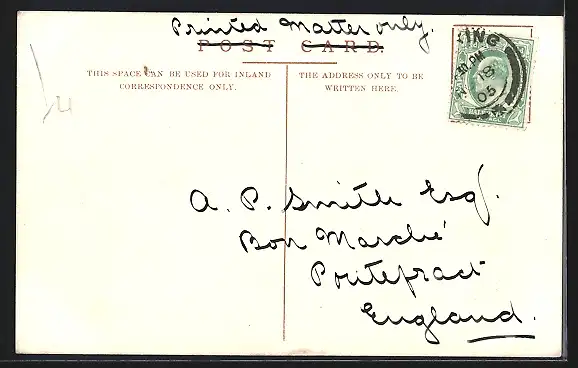 Printed Matter only.
POST CARD.
THIS SPACE CAN BE USED FOR INLAND
CORRESPONDENCE ONLY.
THE ADDRESS ONLY TO BE
WRITTEN HERE.
KING
18
05
HALFPENNY
A. P. Smith Esq.
Bon Marché
Pontefract
England.